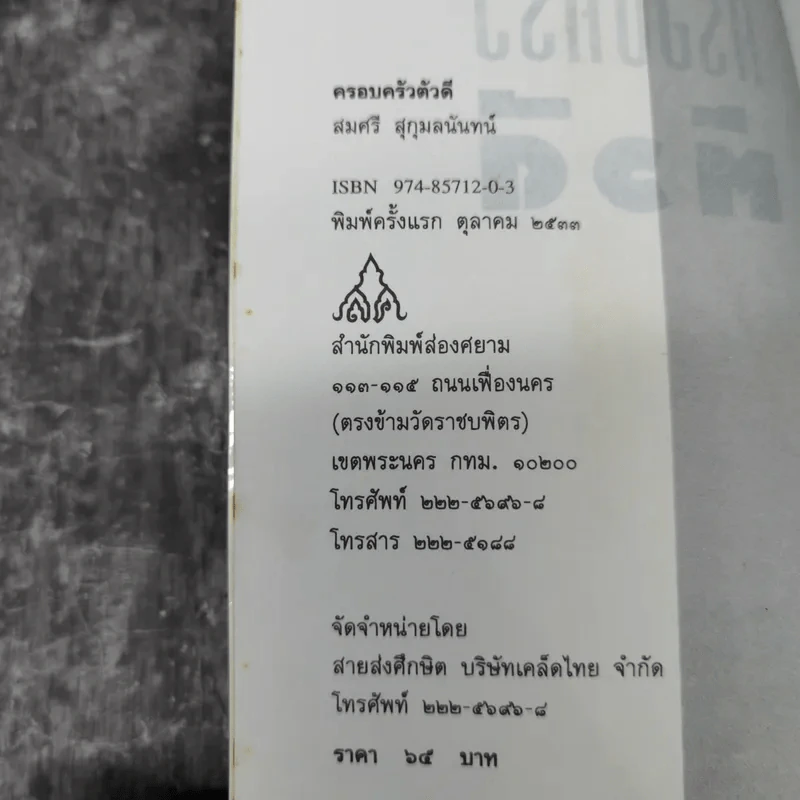 ครอบครัวตัวดี
สมศรี สุกุมลนันทน์
ISBN 974-85712-0-3
พิมพ์ครั้งแรก ตุลาคม ๒๕๓๓
สำนักพิมพ์ส่องศยาม
๑๑๓-๑๑๕ ถนนเฟื่องนคร
(ตรงข้ามวัดราชบพิตร)
เขตพระนคร กทม. ๑๐๒๐๐
โทรศัพท์ ๒๒๒-๕๖๙๖-๘
โทรสาร ๒๒๒-๕๑๘๘
จัดจำหน่ายโดย
สายส่งศึกษิต บริษัทเคล็ดไทย จำกัด
โทรศัพท์ ๒๒๒-๕๖๙๖-๘
ราคา ๖๕ บาท